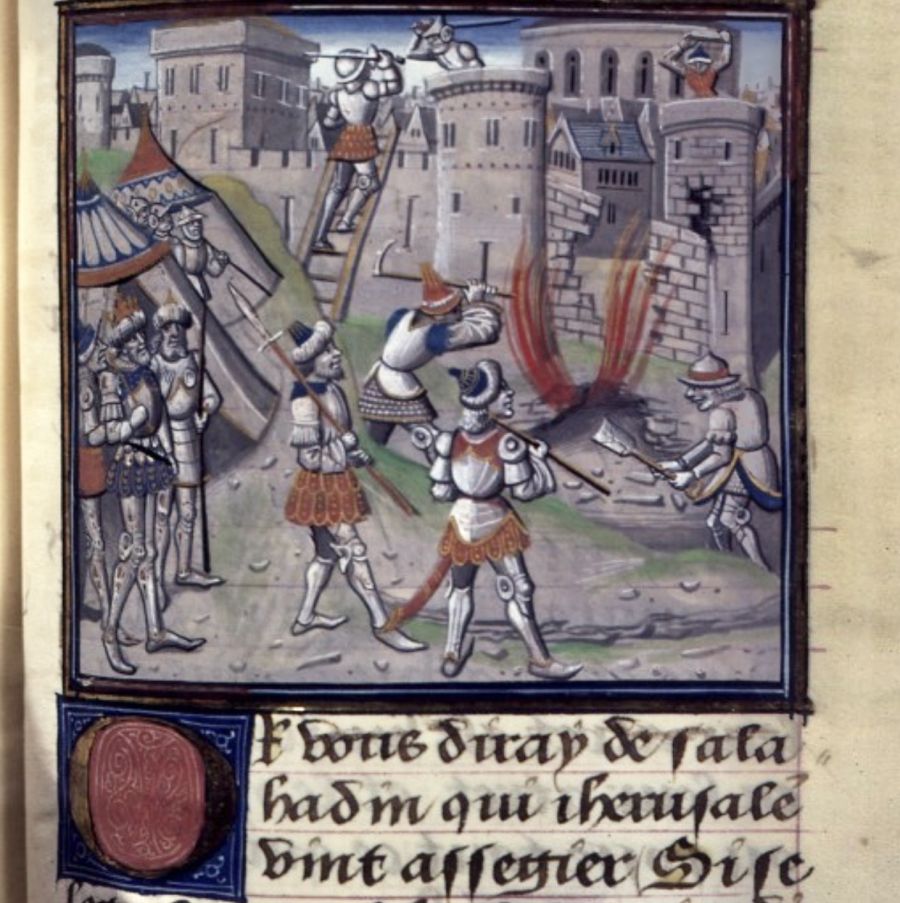 Or vous diray de sala
hadin qui iherusalē
vint assegier Si se